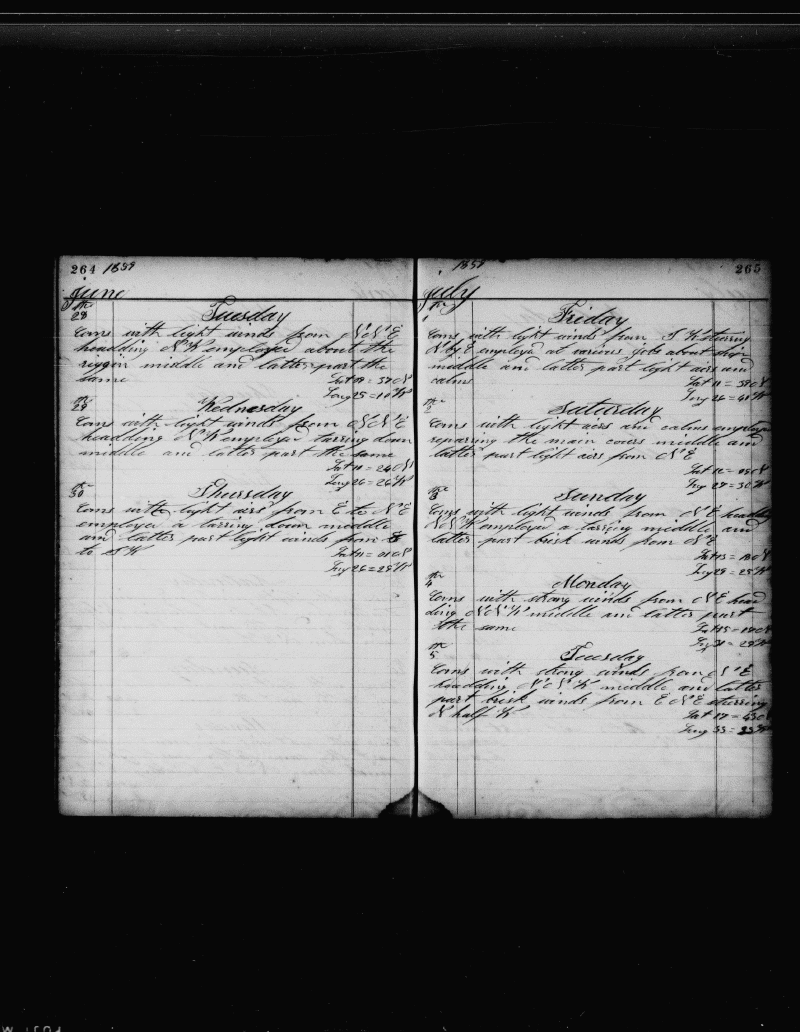 264 1859
June
the
28
Tuesday
Coms with light winds from N N E
headding N W employed about the
riggin middle and latter part the
same
Lat 09 = 57 N
Long 25 = 10 W
the
29
Wednesday
Coms with light winds from N N E
headding N W employed tarring down
middle and latter part the same
Lat 10 = 24 N
Long 26 = 26 W
the
30
Thursday
Coms with light airs from E to N E
employed a tarring down middle
and latter part light winds from S
to S W
Lat 11 = 01 N
Long 26 = 28 W
1859 265
July
the
1
Friday
Coms with light winds from S W sturring
N by E employed at varims jobs about ship
middle and latter part light airs and
calms
Lat 11 = 58 N
Long 26 = 41 W
the
2
Saturday
Coms with light airs and calms employed
reparring the main covers middle and
latter part light airs from N E
Lat 12 = N
Long = 30 W
the
3
Sunday
Coms with light winds from N E headding
N N W employed a tarring middle and
latter part brisk winds from N E
Lat 13 = N
Long 29 = W
the
4
Monday
Coms with strong winds from N E head
ding N N W middle and latter part
the same
Lat 15 = N
Long = W
the
5
Tuesday
Coms with strong winds from N E
headding N N W middle and latter
part brisk winds from E N E sturring
N half W
Lat 17 = 43 N
Long 33 = W